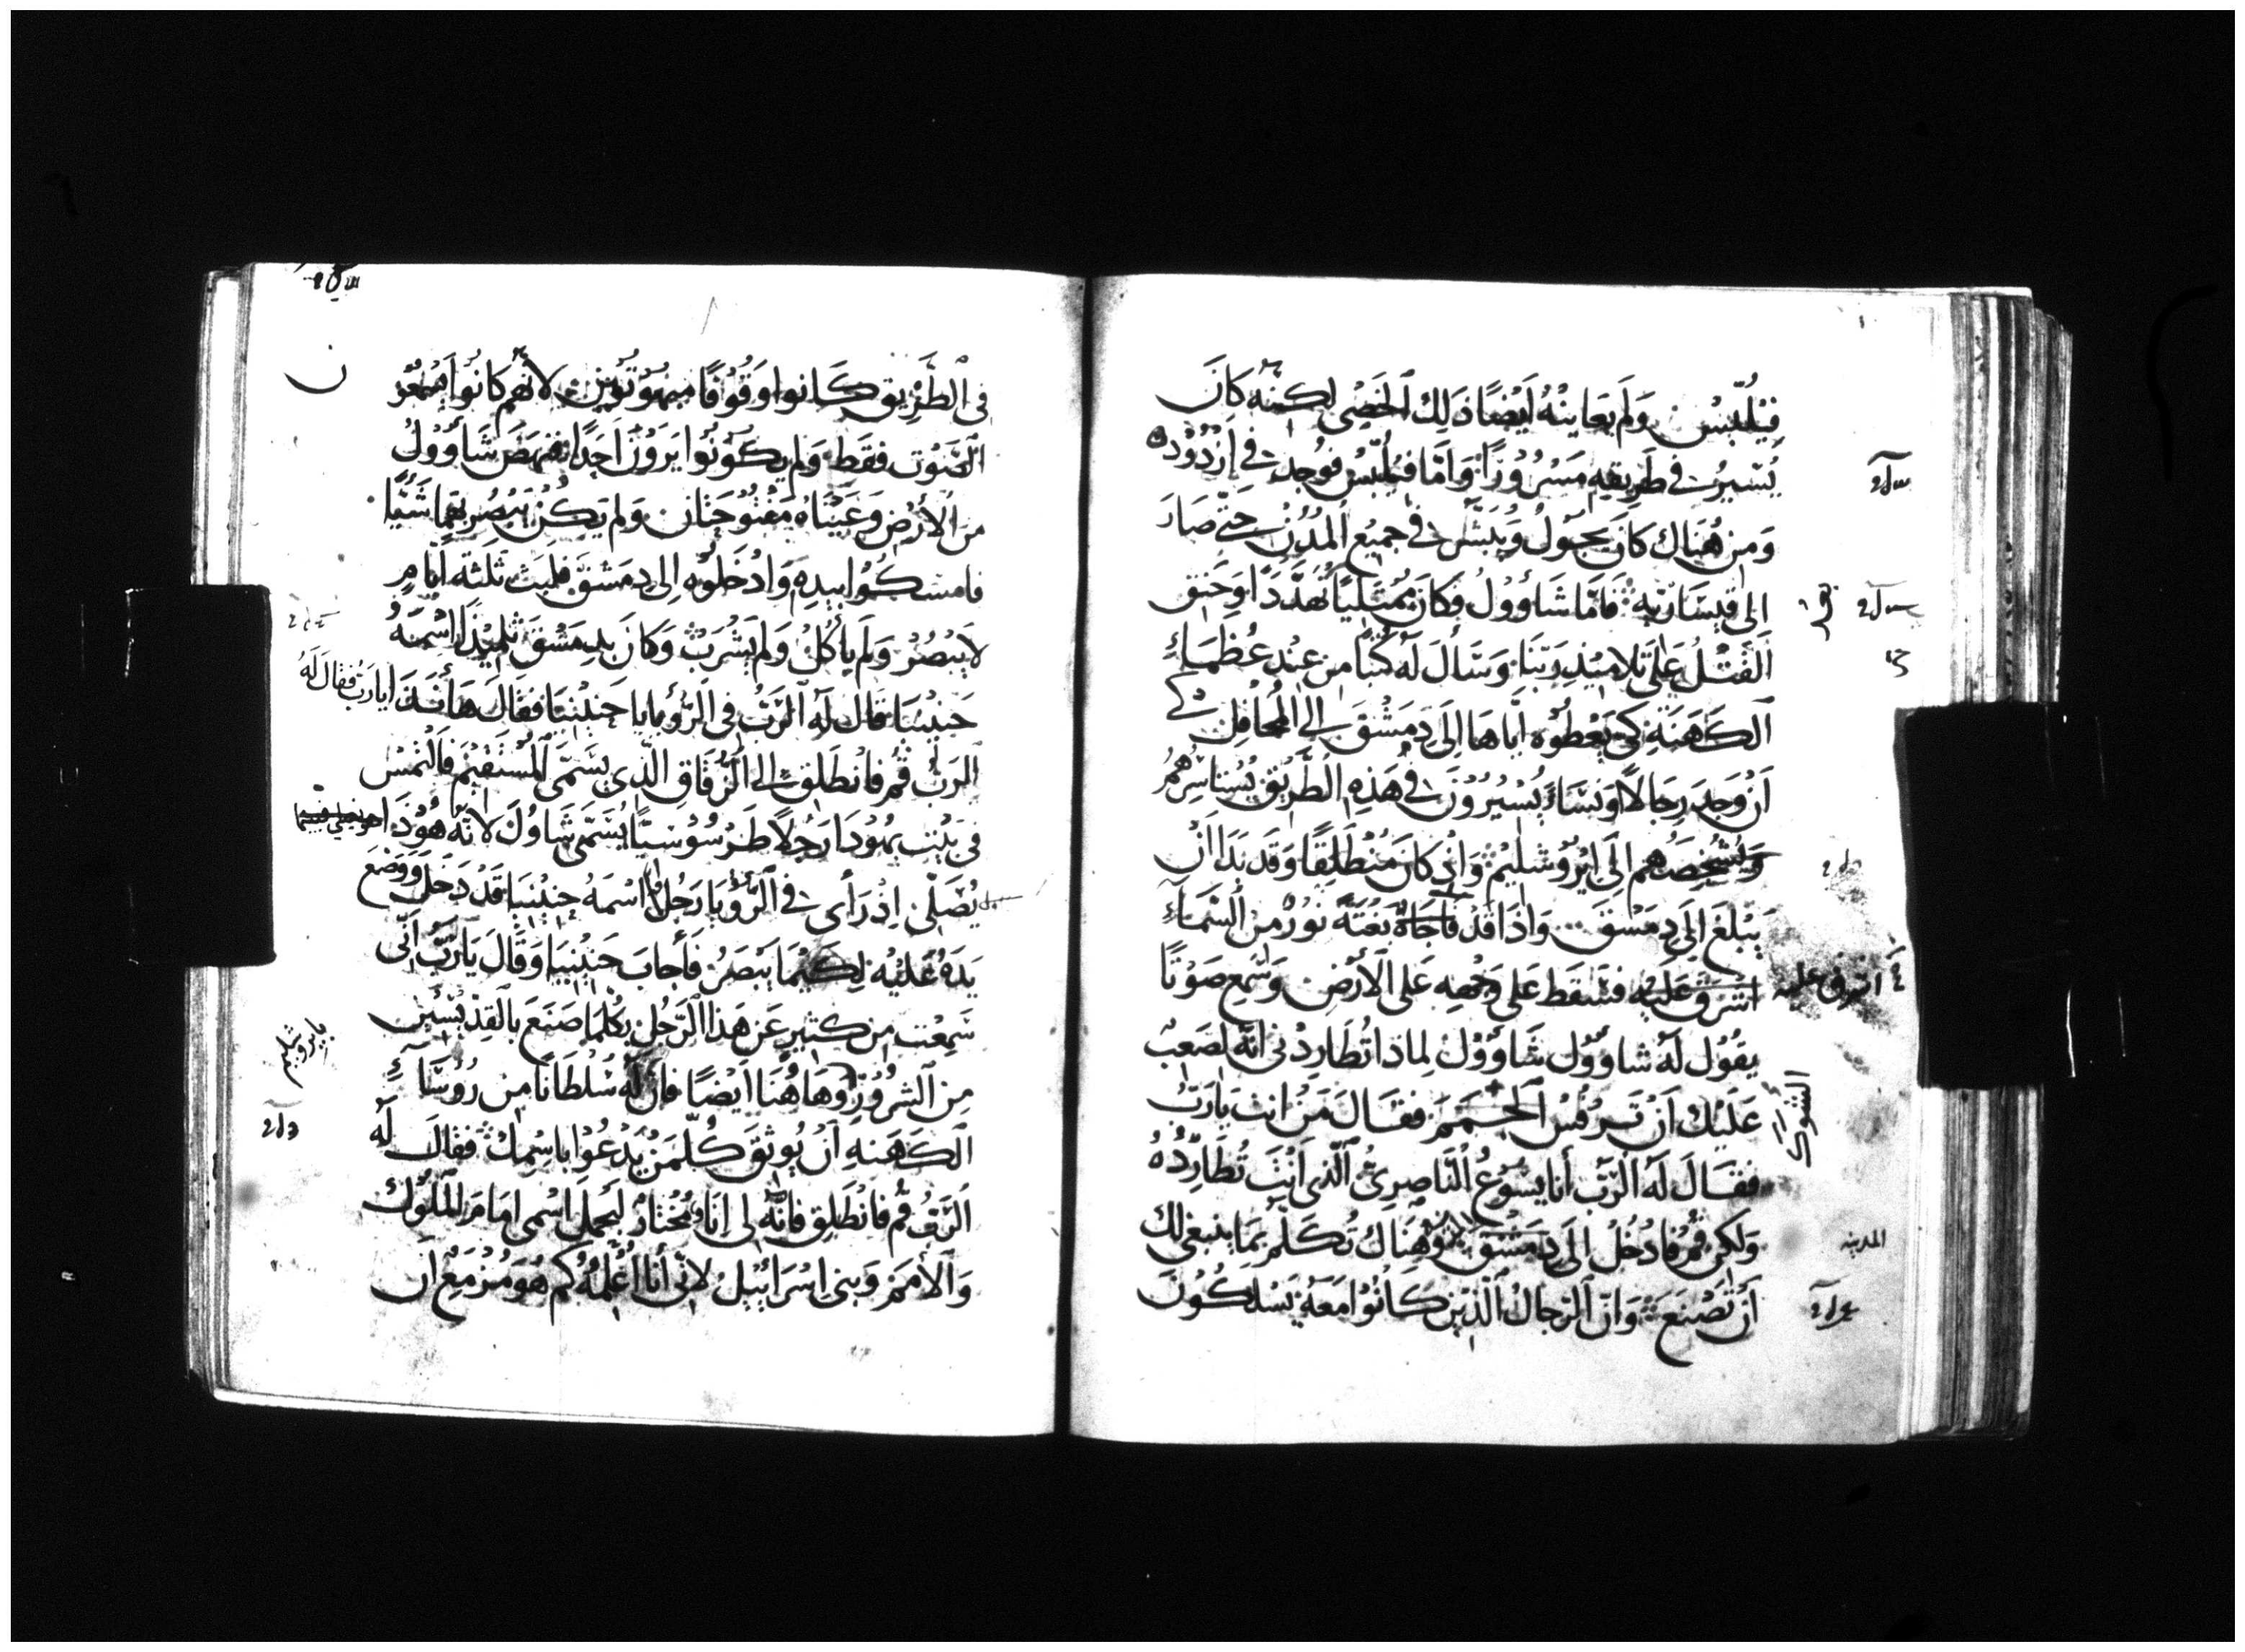 فِيْلُبّسْ وَلَم يعَاينهُ اَيْضًا ذَلِك الخَصِى لكنّه كَانَ
يُسْيرُ فى طريقهِ مَسْرُوْرًا وَامّا فيلُبّسُ فوُجدَ فى اَزْدُوْدْ
وَمِن هُنَاك كانَ يجوْلُ وَيُبَشّر فى جميْع المُدُن حَتّى صَارَ
الى قيْسَاريّه فَامّا شَاوُوْلُ فكَانَ مُمْتليًا تهَدّدًا وَحَنق
القَتْل عَلى تلاميْذ رَبّنَا وسَألَ لهُ كتبًا من عِنْد عُظمَاءِ
الكَهَنَةِ كى يُعْطوْه ايّاهَا الى دِمَشْقَ الى المحَافِل كى
اَنْ وَجدَ رجَالًا وَنسَاءً يُسْيرُوْنَ فى هَذِهِ الطّريْق يُسْتاسِرهُمْ
وَيُشْخِصَهم الى ايْرُوْشليْم وَاِذ كانَ مُنْطلِقًا وَقد بَدَا اَنْ
يَبْلغَ الى دِمَشقَ وَاذا قد فاجَاهُ بَغْتَةً نورٌ من السّمَاءِ
اشْرَقَ عَليْه فسَقط عَلى وَجْهه عَلى الاَرْض وَسْمعَ صَوْتًا
اشرق عليه
يقوُل لهُ شاوُوْل شَاوُوْل لماذا تُطَاردْنى انّهُ لصَعبٌ
عَليْك اَنْ تَرْفُسَ الجُممَ فقَالَ مَنْ انتَ يَا رَبّ
الشوك
فقَالَ لهُ الرّبّ أنا يسُوْعُ النّاصِرىُّ الّذى اَنْتَ تُطَاردُهُ
وَلكِن قُمْ فادْخُلْ الى دمَشْقَ وَهُنَاك تُكَلّم بمَا ينبَغى لك
المدينه
اَنْ تَصْنَعَ وَانّ الرّجَالُ الّذيْن كَانُوْا مَعَهُ يَسْلكُوْنَ
فى الطَّريق كَانوا وَقُوْفًا مبهُوْتيْن لانّهم كَانوا يسْمعُوْن
الصّوْت فقط وَلم يكُوْنُوا يَرَوْنَ اَحَدًا فنهَضَ شَاوُوْلُ
من الاَرْض وَعَيْنَاهُ مَفْتُوْحَتَان وَلم يَكُنْ يُبْصُر بهمَا شَيْئًا
فامْسَكُوْا بيدِهِ وَادْخَلوْه الى دِمَشْقَ فلبثَ ثلثةَ ايّامٍ
لَا يَبْصُرْ وَلَم يَأكُلْ وَلم يَشْرَبْ وَكَانَ بدِمَشْقَ تلميْذًا اسْمُهُ
حَنيْنيَا قال لهُ الرّبّ فى الرّؤيا يا حَنِيْنيَا فقَالَ هَا أنذَا يارَبّ فقالَ لهُ
الرَبّ قُمْ فانْطلق الى الزّقاق الّذى يُسَمّى المُسْتَقيْم فَالْتمسْ
فى بَيْت يهُوْدَا رَجُلًا طَرْسُوْسيًّا يُسَمّى شَاوُل لانّهُ هُوْذَا
يُصَلّى اِذْ رَأى فى الرّؤيا رَجُلًا اسْمهُ حَنيْنيَا قَدْ دَخَل وَوَضعَ
يَدهُ عَليْه لكيْمَا يَبْصَرُ فَأجابَ حَنِيْنيَا وَقَالَ يَارَبّ اَنّى
سَمعْت من كثيرٍ عَن هَذا الرّجُل بكُلمَا صَنعَ بالقدّيْسيْن
بايروشليم
مِن الشرُوْر وَهَاهُنَا ايْضًا فانّ لهُ سُلطَانًا من رُوُسَاءِ
الكَهَنهِ اَنْ يُوثقَ كُلّمَنْ يَدْعُوْا باسْمك فقَالَ لهُ
الرّبّ قُم فانْطلِق فانّه لى اِنَاءٌ مُخْتارٌ ليَحملَ اسْمى امَامَ المُلوْك
وَالاُمَم وَبنى اسْرَائيْل لانّى أنَا اُعْلمُهُ كم هُوَ مُزْمعٌ ان